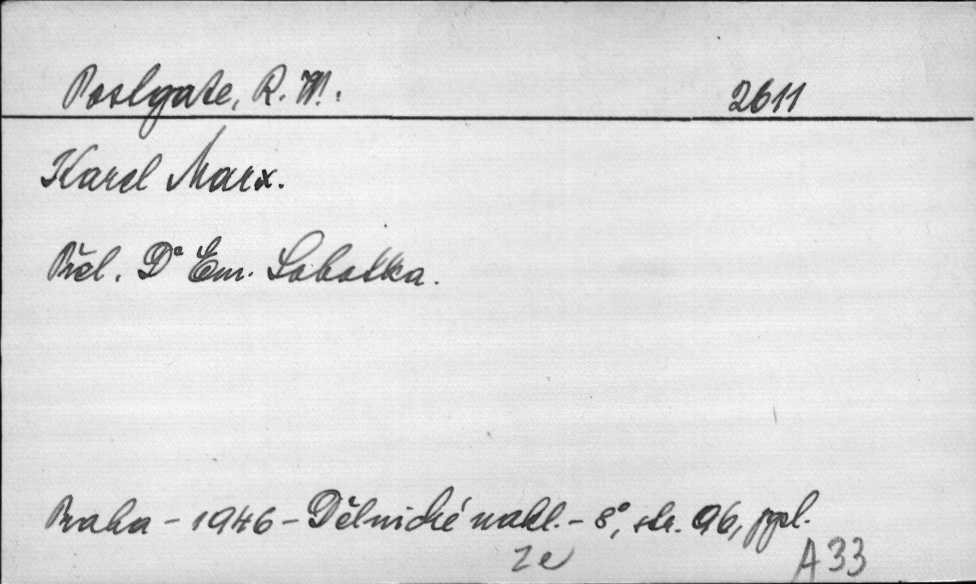 Postgate, R. W. 2611
Karel Marx.
Přel. Dr Em. Sobotka.
Praha - 1946 - Dělnické nakl. - 8°, str. 96, ppl.
A 33